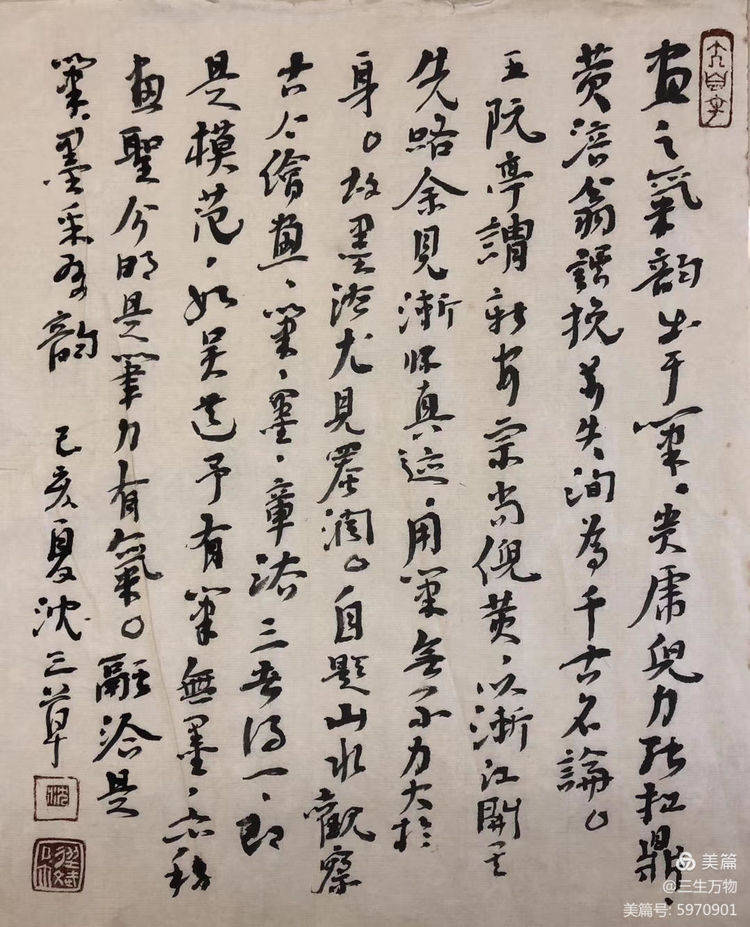 画之氣韵出于筆、贵庸兒力能扛鼎、
黄涪翁谓挽万失洵為千古名論。
王阮亭謂新安宗尚倪黄、以浙江開其
先路余見浙師真迹、用筆無不力大於
身。故墨法尤見蒼潤。自题山水觀察
古今繪画、筆、墨、章法三者得一、即
是模范、如吴道子有筆無墨、亦稱
画聖分明是筆力有氣。融洽是
筆墨采为韵 己亥夏沈三草
美篇
@三生万物
美篇号: 5970901